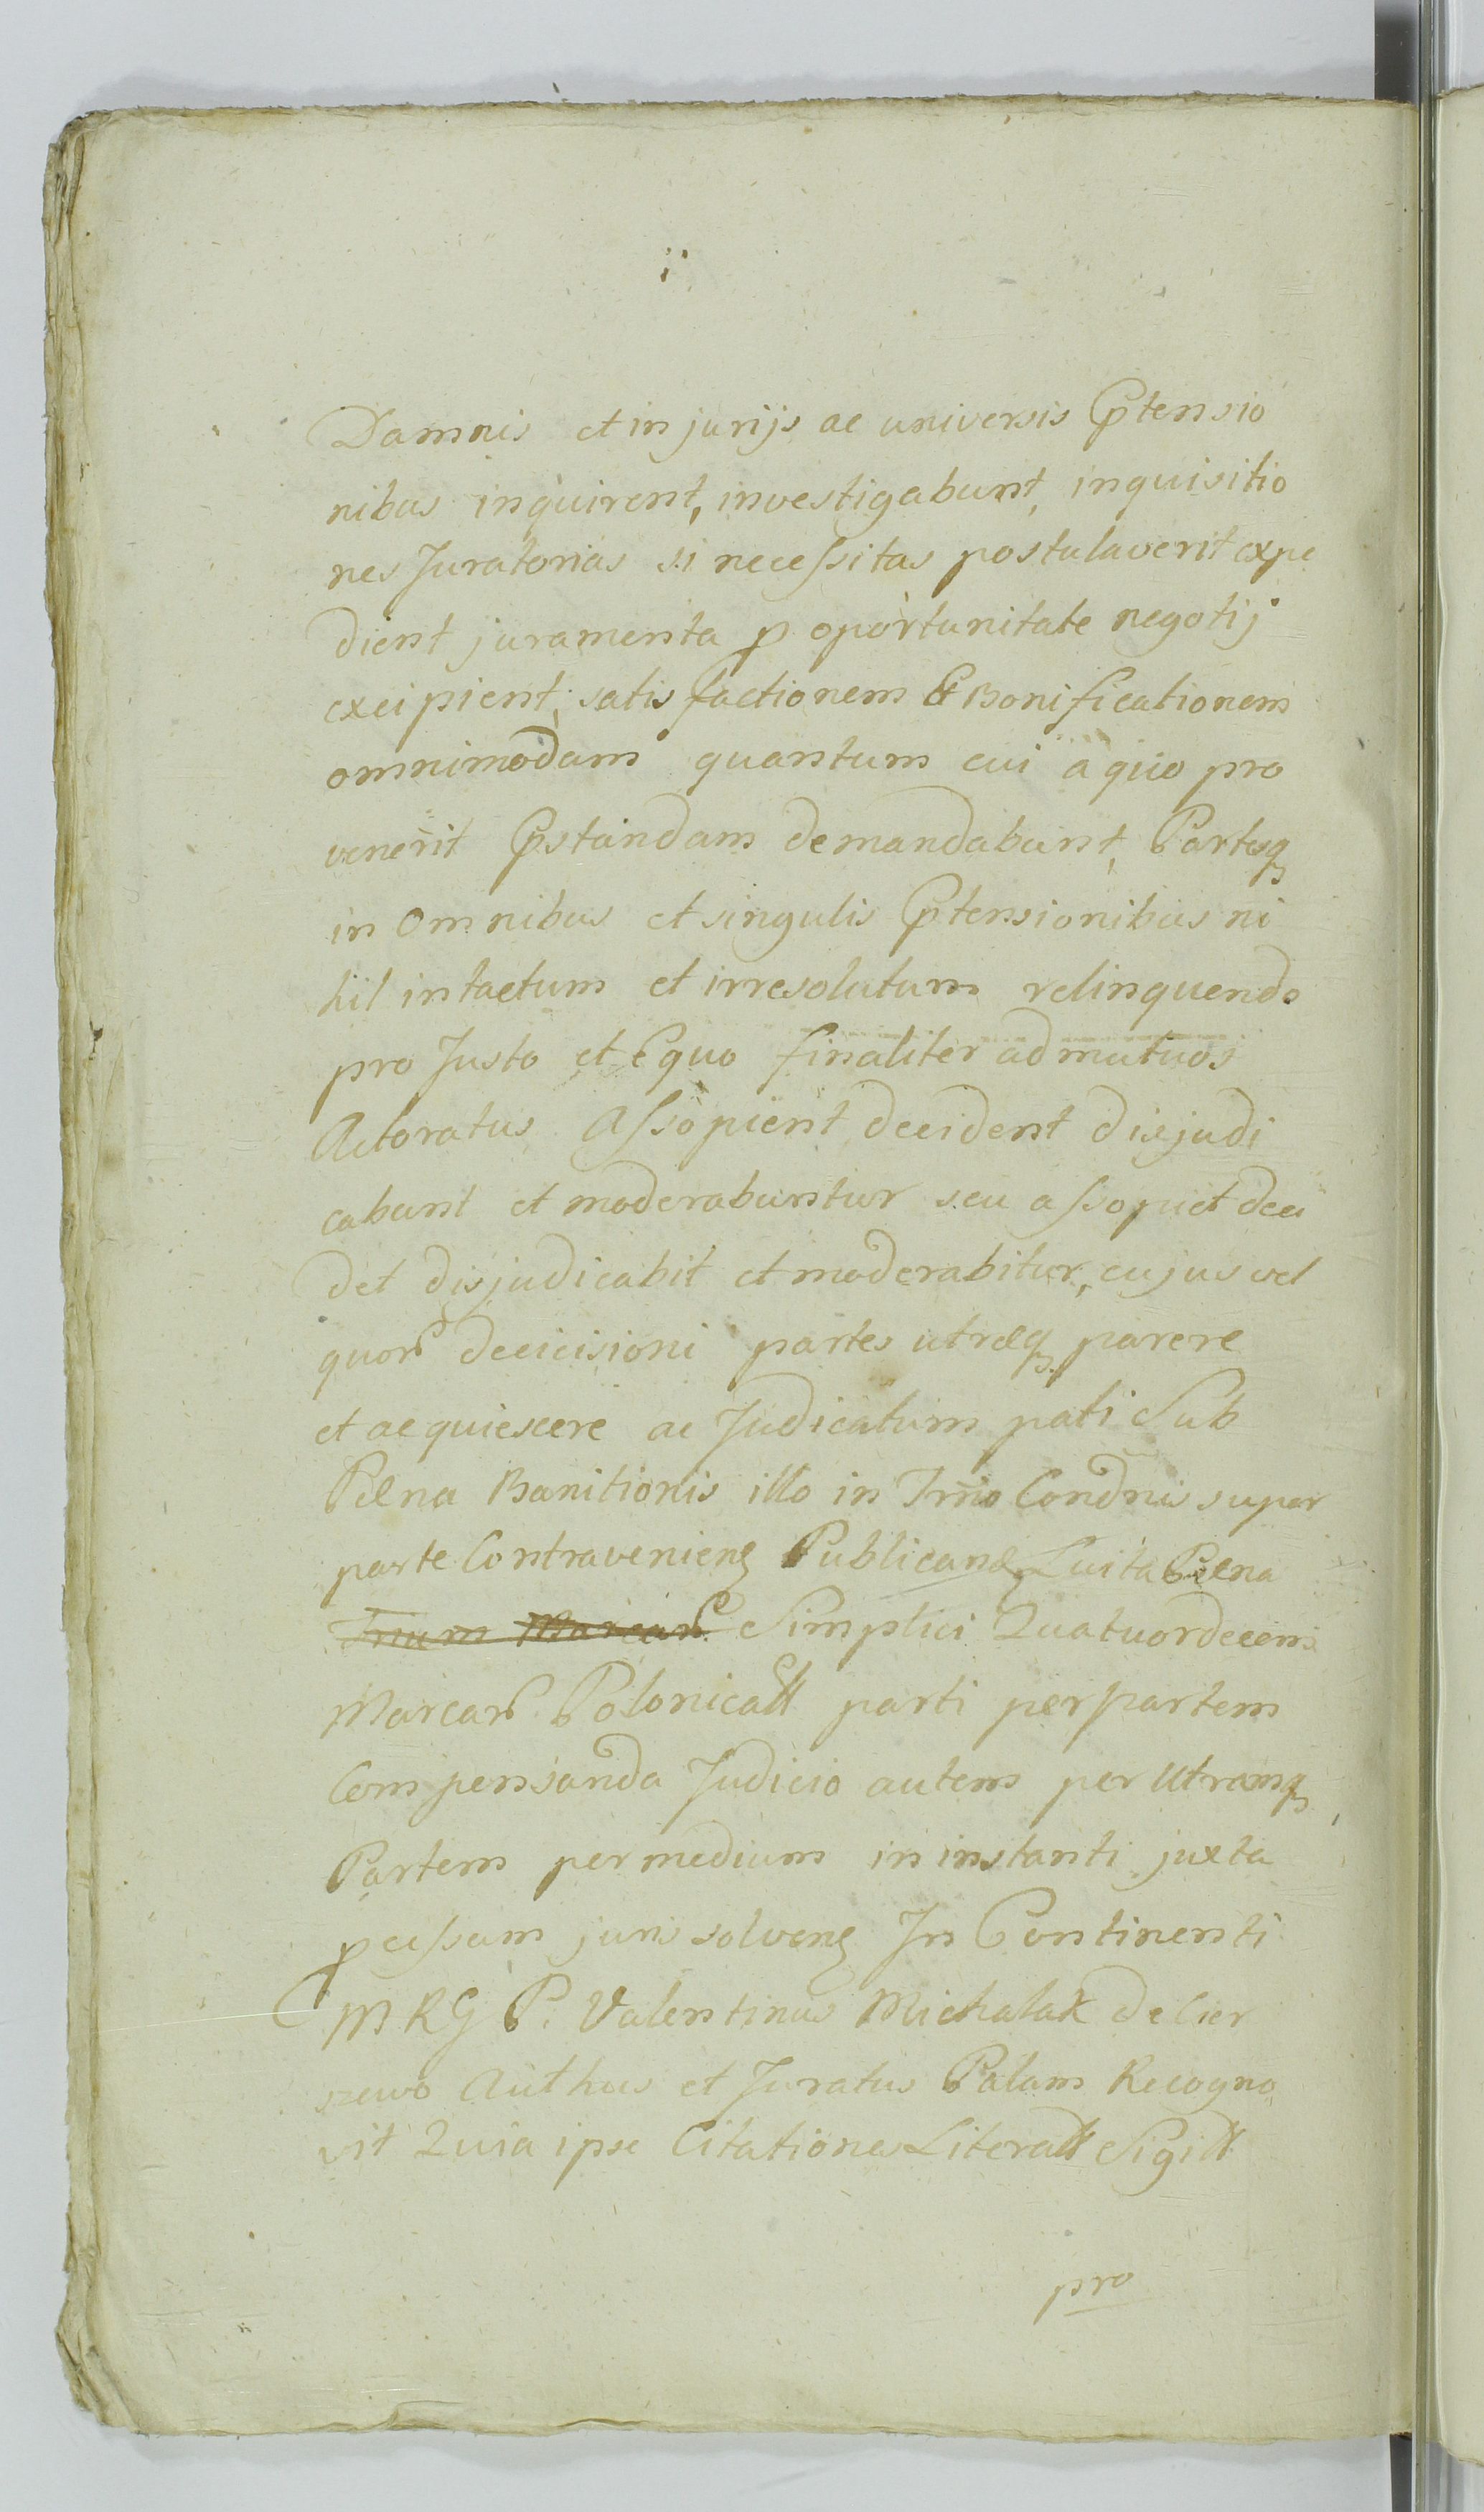 Damnis et injurijs ac universis Ptensio
nibus inquirent, investigabunt, inquisitio
nes Juratorias si necessitas postulaverit expe
dient juramenta p oportunitate negotij
excipient, satisfactionem & Bonificationem
omnimodam quantum cui a quo pro
venerit Pstandam demandabunt, Partesq
in Omnibus et singulis Ptensionibus ni
hil intactum et irresolutum relinquendo
pro Justo et Equo finaliter ad mutuos
Actoratus Assopient decident disjudi
cabunt et moderabuntur seu assopiet deci
det disjudicabit et moderabitur, cujus vel
quor decicisioni partes utræq parere
et acquiescere ac Judicatum pati Sub
Pæna Banitionis illo in Trno Condnis super
parte Contravenien Publicand Luita Pæna
Trium Marcar Simplici Quatuordecem
Marcar Polonicall parti per partem
Compensanda Judicio autem per Utramq
Partem per medium in instanti juxta
pcissam juris solven In Continenti
MRG P. Valentinus Michalak de Cier
szewo Authus et Juratus Palam Recogno
vit Quia ipse Citationes Literall Sigill
pro